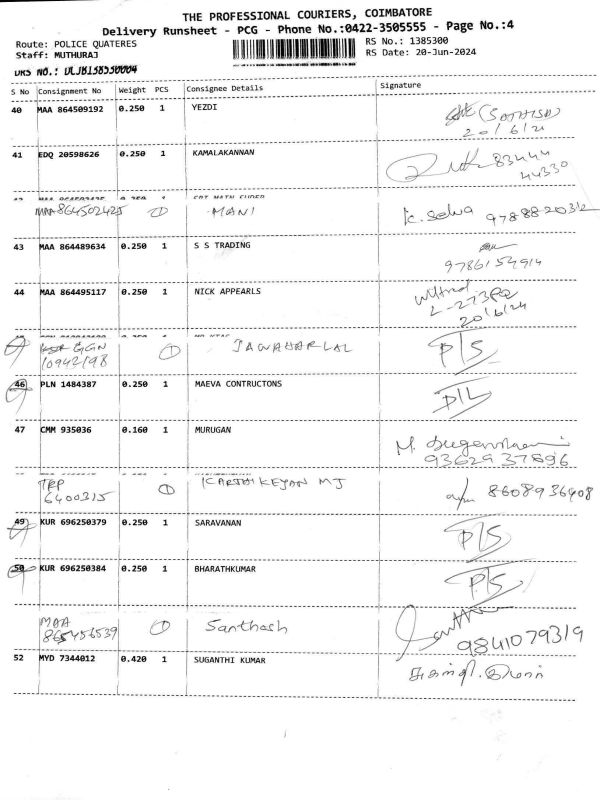 THE PROFESSIONAL COURIERS, COIMBATORE
Delivery Runsheet - PCG - Phone No.:0422-3505555 - Page No.:4
Route: POLICE QUATERES
RS No.: 1385300
Staff: MUTHURAJ
RS Date: 20-Jun-2024
DRS NO.:
S No Consignment No Weight PCS Consignee Details Signature
40 MAA 864509192 0.250 1 YEZDI (SATHISH)
20/6/21
41 EDQ 20598626 0.250 1 KAMALAKANNAN 83444
44330
MAA 864502425 1 MANI K. Selva
43 MAA 864489634 0.250 1 S S TRADING
9786154914
44 MAA 864495117 0.250 1 NICK APPEARLS
20/6/24
GGN 1 JAWAHARLAL P/S
10942198
46 PLN 1484387 0.250 1 MAEVA CONTRUCTONS D/L
47 CMM 935036 0.160 1 MURUGAN M.
9362937896
TRP 1 KARTHIKEYAN MJ 8608936408
6400315
49 KUR 696250379 0.250 1 SARAVANAN P/S
50 KUR 696250384 0.250 1 BHARATHKUMAR P/S
MAA 1 Santhosh
865456539 9841079319
52 MYD 7344012 0.420 1 SUGANTHI KUMAR சுகன்தி.குமார்